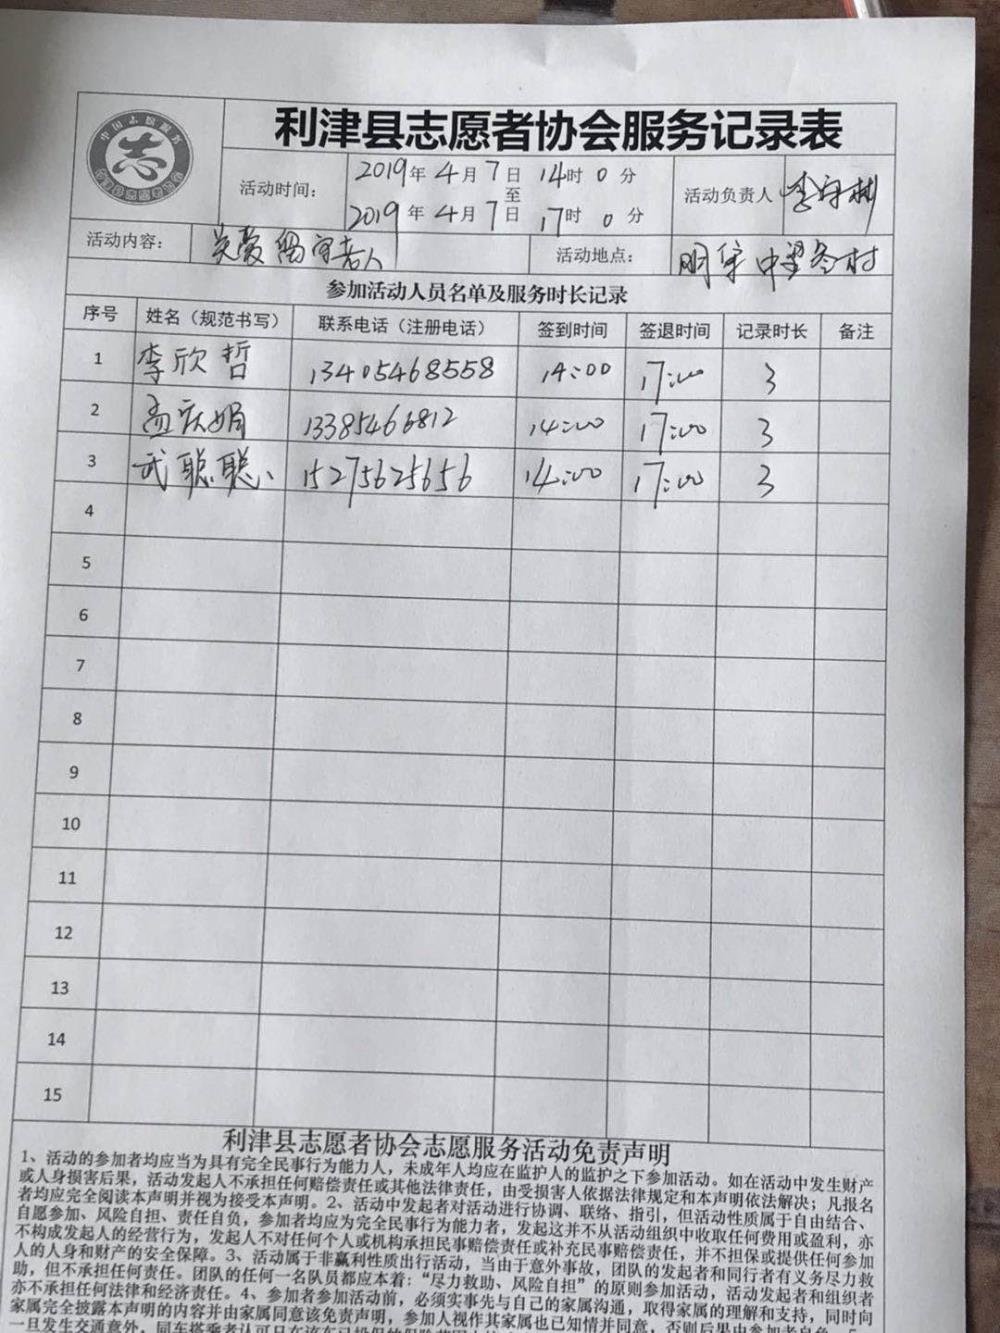 中国志愿服务
志
利津县志愿者协会服务记录表
活动时间：
2019年 4月 7日 14时 0分
至
2019年 4月 7日 17时 0分
活动负责人
活动内容： 关爱留守老人
活动地点：
参加活动人员名单及服务时长记录
序号 姓名（规范书写） 联系电话（注册电话） 签到时间 签退时间 记录时长 备注
1 李欣哲 13405468558 14:00 17:00 3
2 孟庆娟 13385466812 14:00 17:00 3
3 武聪聪 15275625656 14:00 17:00 3
4
5
6
7
8
9
10
11
12
13
14
15
利津县志愿者协会志愿服务活动免责声明
1、活动的参加者均应当为具有完全民事行为能力人，未成年人均应在监护人的监护之下参加活动。如在活动中发生财产
或人身损害后果，活动发起人不承担任何赔偿责任或其他法律责任，由受损害人依据法律规定和本声明依法解决；凡报名
者均应完全阅读本声明并视为接受本声明。2、活动中发起者对活动进行协调、联络、指引，但活动性质属于自由结合、
自愿参加、风险自担、责任自负，参加者均应为完全民事行为能力者，发起这并不从活动组织中收取任何费用或盈利，亦
不构成发起人的经营行为，发起人不对任何个人或机构承担民事赔偿责任或补充民事赔偿责任，并不担保或提供任何参加
人的人身和财产的安全保障。3、活动属于非赢利性质出行活动，当由于意外事故，团队的发起者和同行者有义务尽力救
助，但不承担任何责任。团队的任何一名队员都应本着：“尽力救助、风险自担”的原则参加活动，活动发起者和组织者
亦不承担任何法律和经济责任。4、参加者参加活动前，必须实事先与自己的家属沟通，取得家属的理解和支持，同时向
家属完全披露本声明的内容并由家属同意该免责声明，参加人视作其家属也已知情并同意，否则后果由参加者自负
一旦发生交通意外，同车搭乘者认可只在该车已投保的保险范围